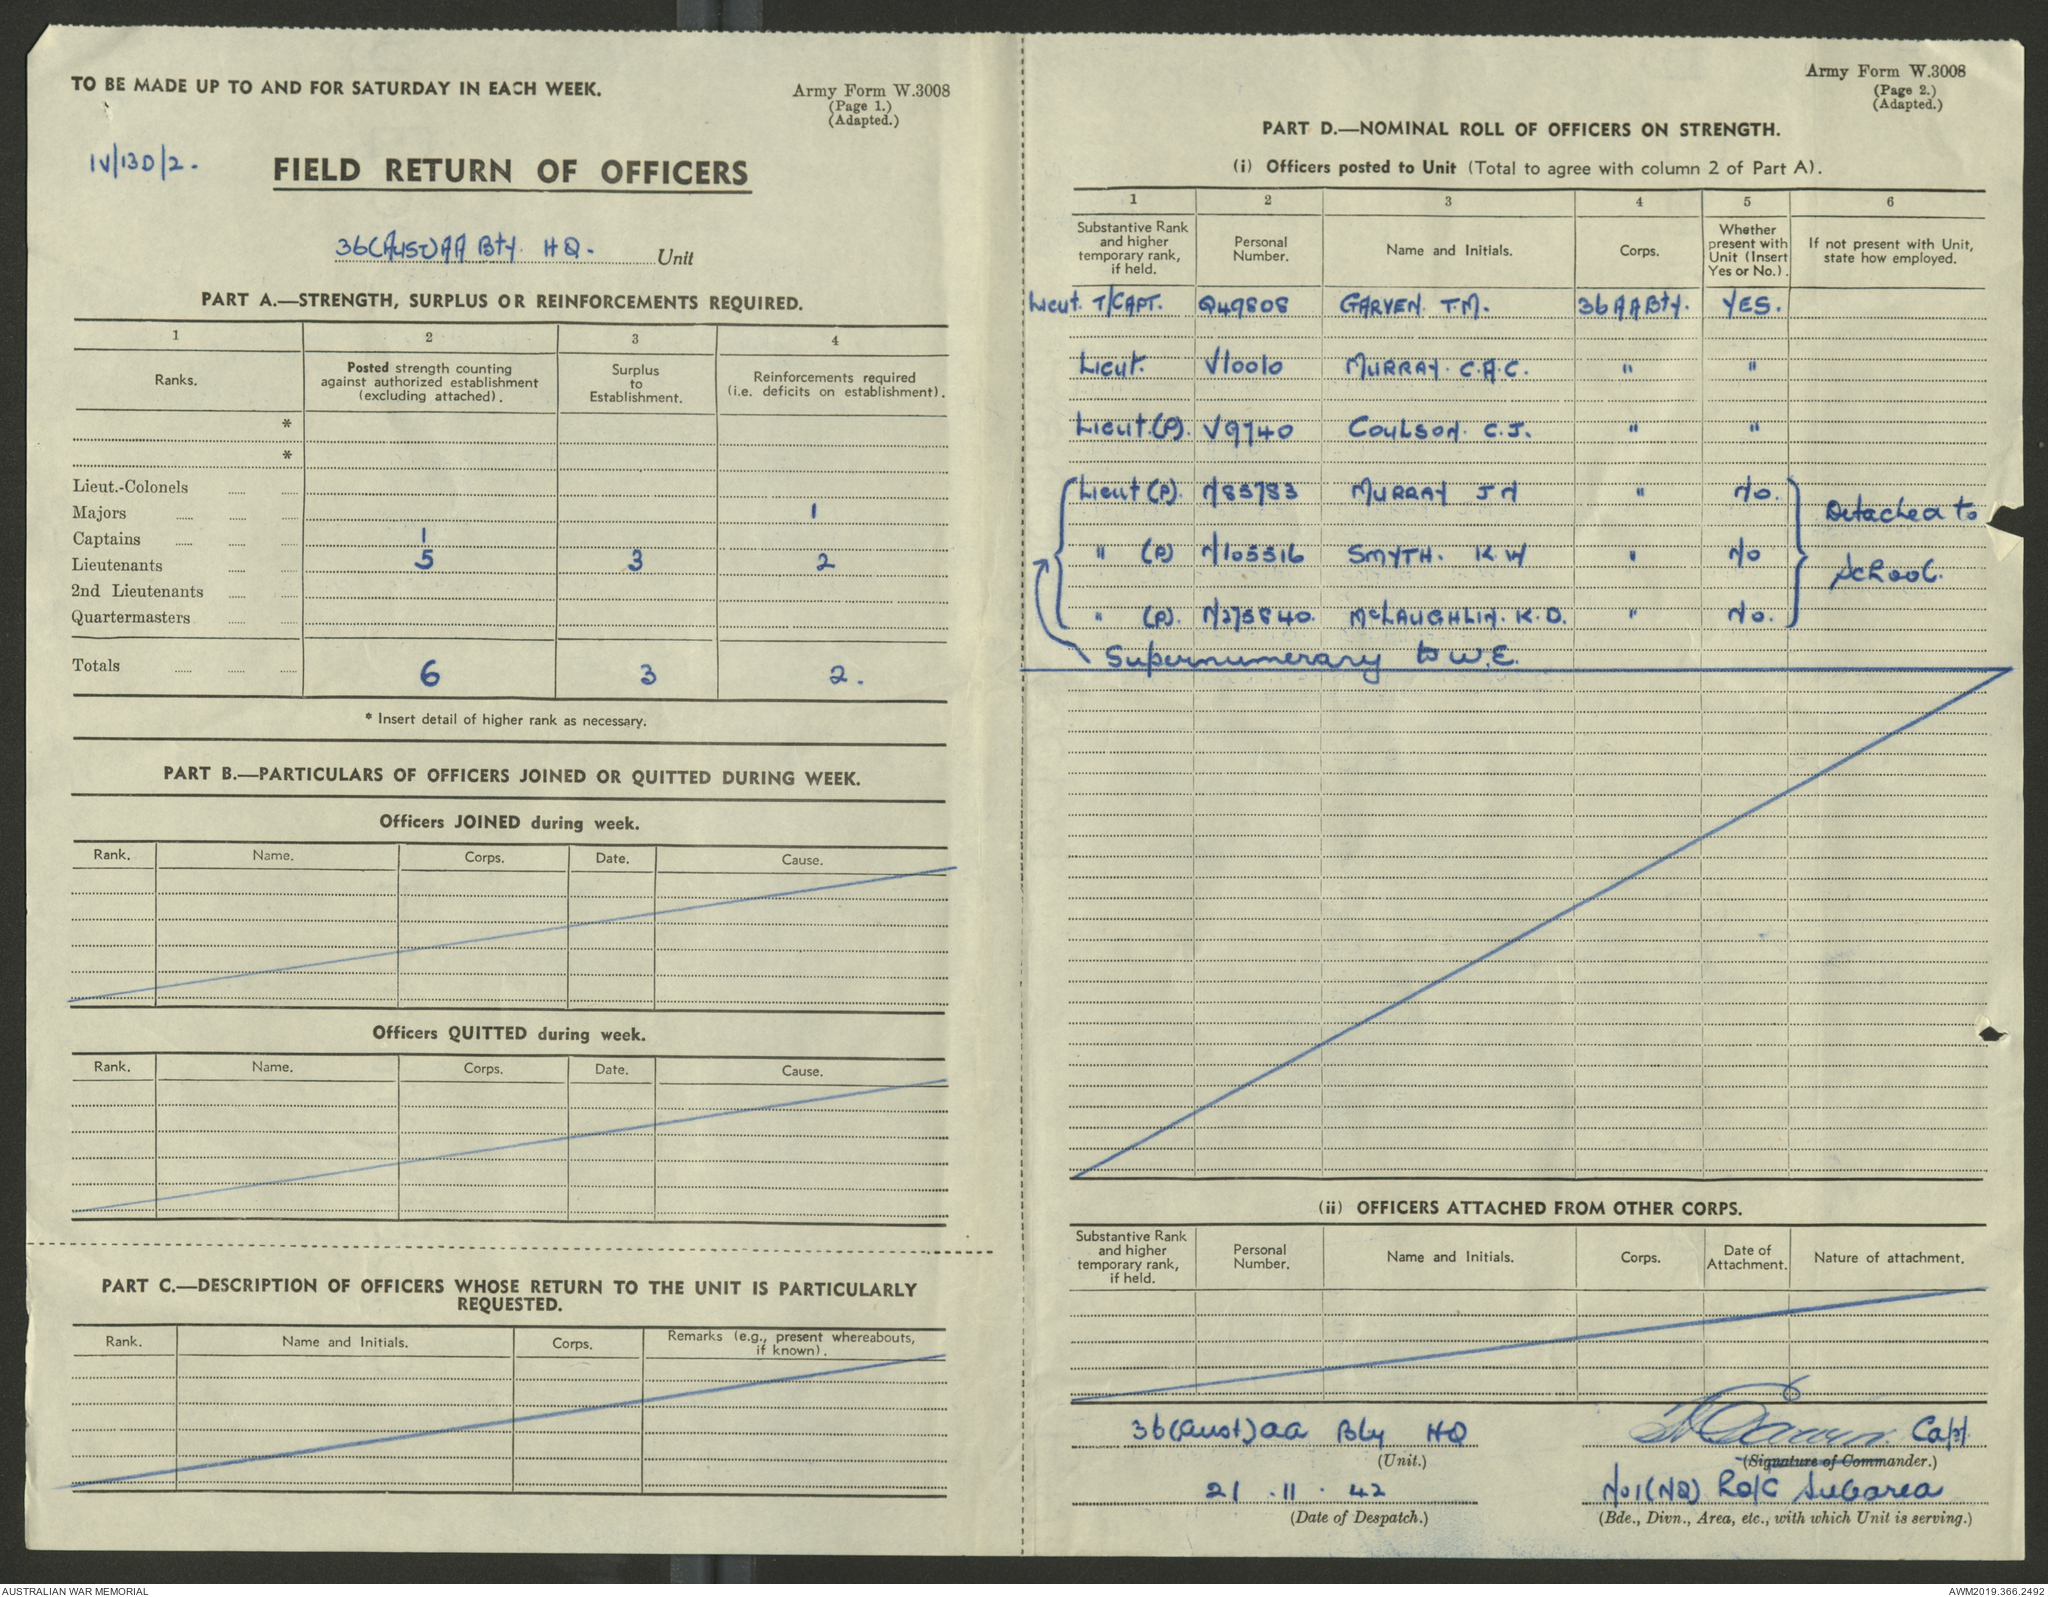 TO BE MADE UP TO AND FOR SATURDAY IN EACH WEEK.
Army Form W.3008
(Page 1.)
(Adapted.)
IV/13D/2.
FIELD RETURN OF OFFICERS
36(AUST)AA Bty. HQ. Unit
PART A.—STRENGTH, SURPLUS OR REINFORCEMENTS REQUIRED.
1 2 3 4
Ranks. Posted strength counting against authorized establishment (excluding attached). Surplus to Establishment. Reinforcements required (i.e. deficits on establishment).
*
*
Lieut.-Colonels
Majors 1
Captains 1
Lieutenants 5 3 2
2nd Lieutenants
Quartermasters
Totals 6 3 2.
* Insert detail of higher rank as necessary.
PART B.—PARTICULARS OF OFFICERS JOINED OR QUITTED DURING WEEK.
Officers JOINED during week.
Rank. Name. Corps. Date. Cause.
Officers QUITTED during week.
Rank. Name. Corps. Date. Cause.
PART C.—DESCRIPTION OF OFFICERS WHOSE RETURN TO THE UNIT IS PARTICULARLY
REQUESTED.
Rank. Name and Initials. Corps. Remarks (e.g., present whereabouts, if known).
Army Form W.3008
(Page 2.)
(Adapted.)
PART D.—NOMINAL ROLL OF OFFICERS ON STRENGTH.
(i) Officers posted to Unit (Total to agree with column 2 of Part A).
1 2 3 4 5 6
Substantive Rank and higher temporary rank, if held. Personal Number. Name and Initials. Corps. Whether present with Unit (Insert Yes or No.). If not present with Unit, state how employed.
Lieut. T/CAPT. Q49808 GARVEN. T.M. 36 AA Bty. YES.
Lieut. V10010 MURRAY. C.A.C. " "
Lieut.(P). V9740 COULSON. C.J. " "
Lieut (P). N83783 MURRAY J N " No.
" (P) N105516 SMYTH. K W " No
" (P). N275840. McLAUGHLIN. K.D. " No.
Detached to
School.
Supernumerary to W.E.
(ii) OFFICERS ATTACHED FROM OTHER CORPS.
Substantive Rank and higher temporary rank, if held. Personal Number. Name and Initials. Corps. Date of Attachment. Nature of attachment.
36(Aust)AA Bty HQ
(Unit.)
21.11.42
(Date of Despatch.)
Capt.
(Signature of Commander.)
No1(NQ) Subarea
(Bde., Divn., Area, etc., with which Unit is serving.)
AUSTRALIAN WAR MEMORIAL
AWM2019.366.2492